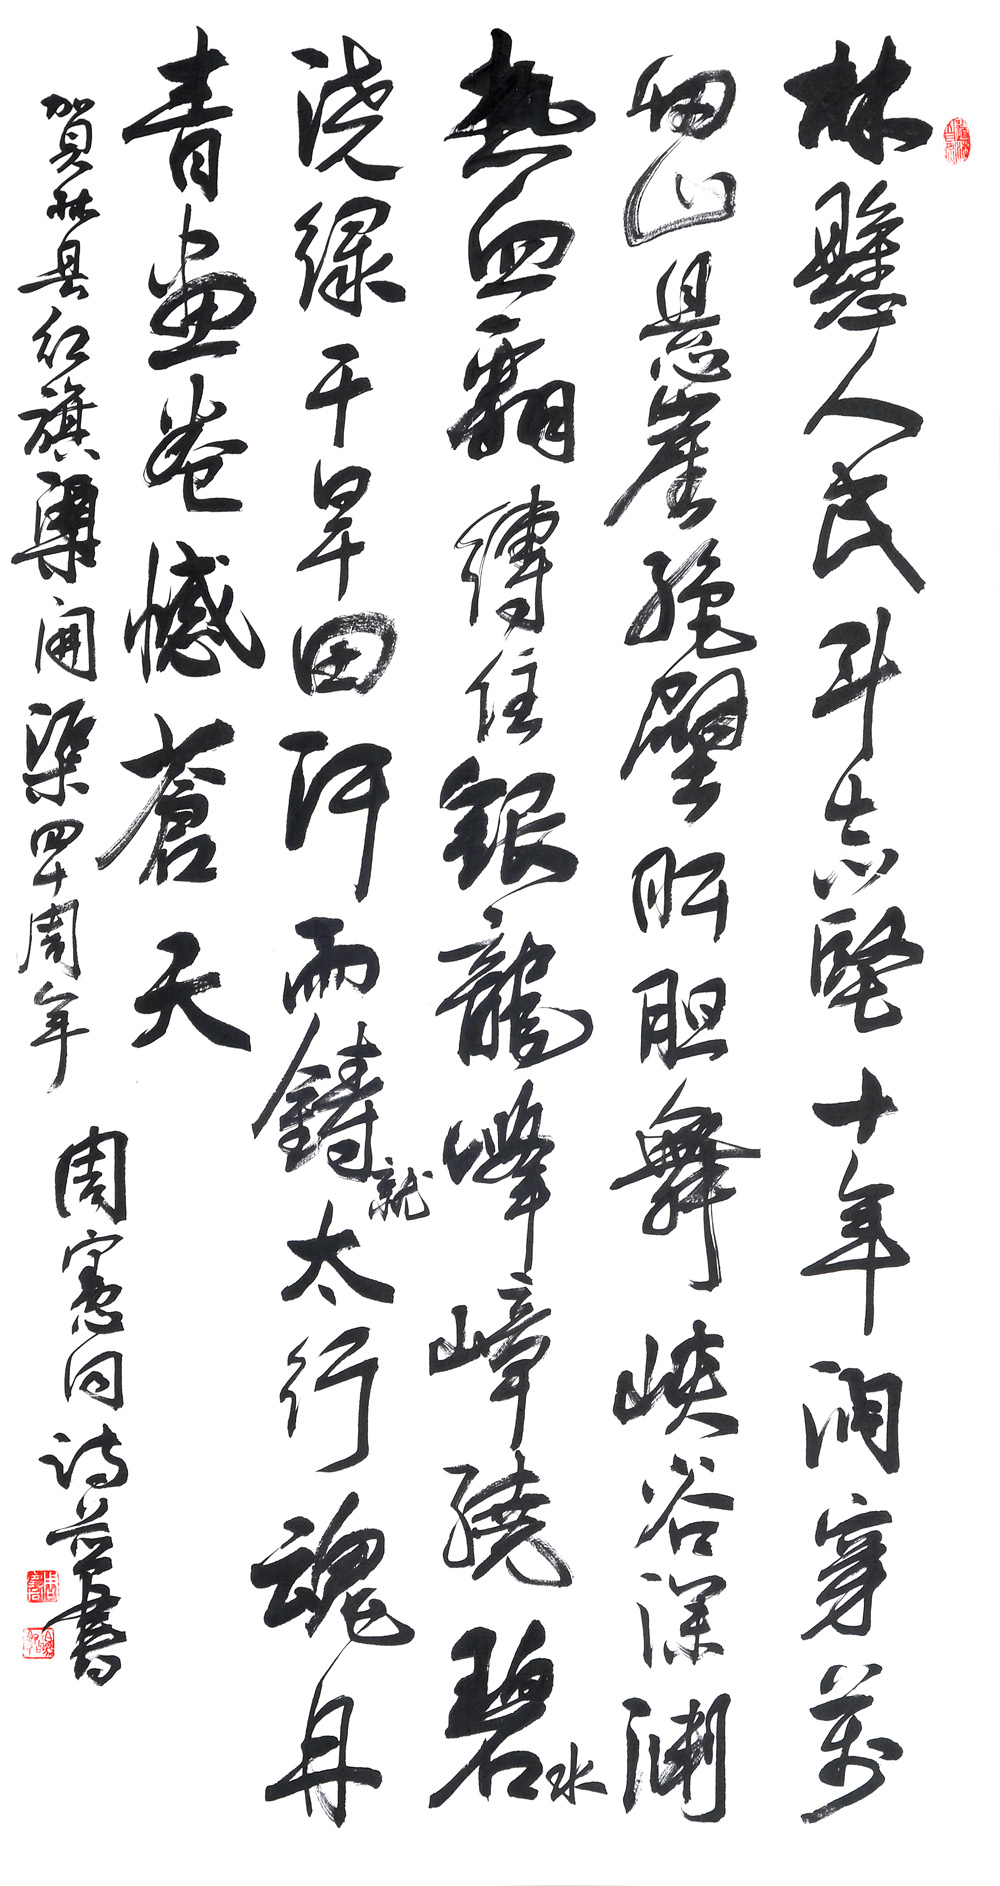 林縣人民斗志堅十年洞穿萬
仞山懸崖絕壁肝胆舞峽谷深渊
熱血翻縛住銀龍峰嶂繞碧水
浇綠干旱田阡陌鑄就太行魂丹
青畫卷憾蒼天
賀林县红旗渠開渠四十周年
周憲同诗并書